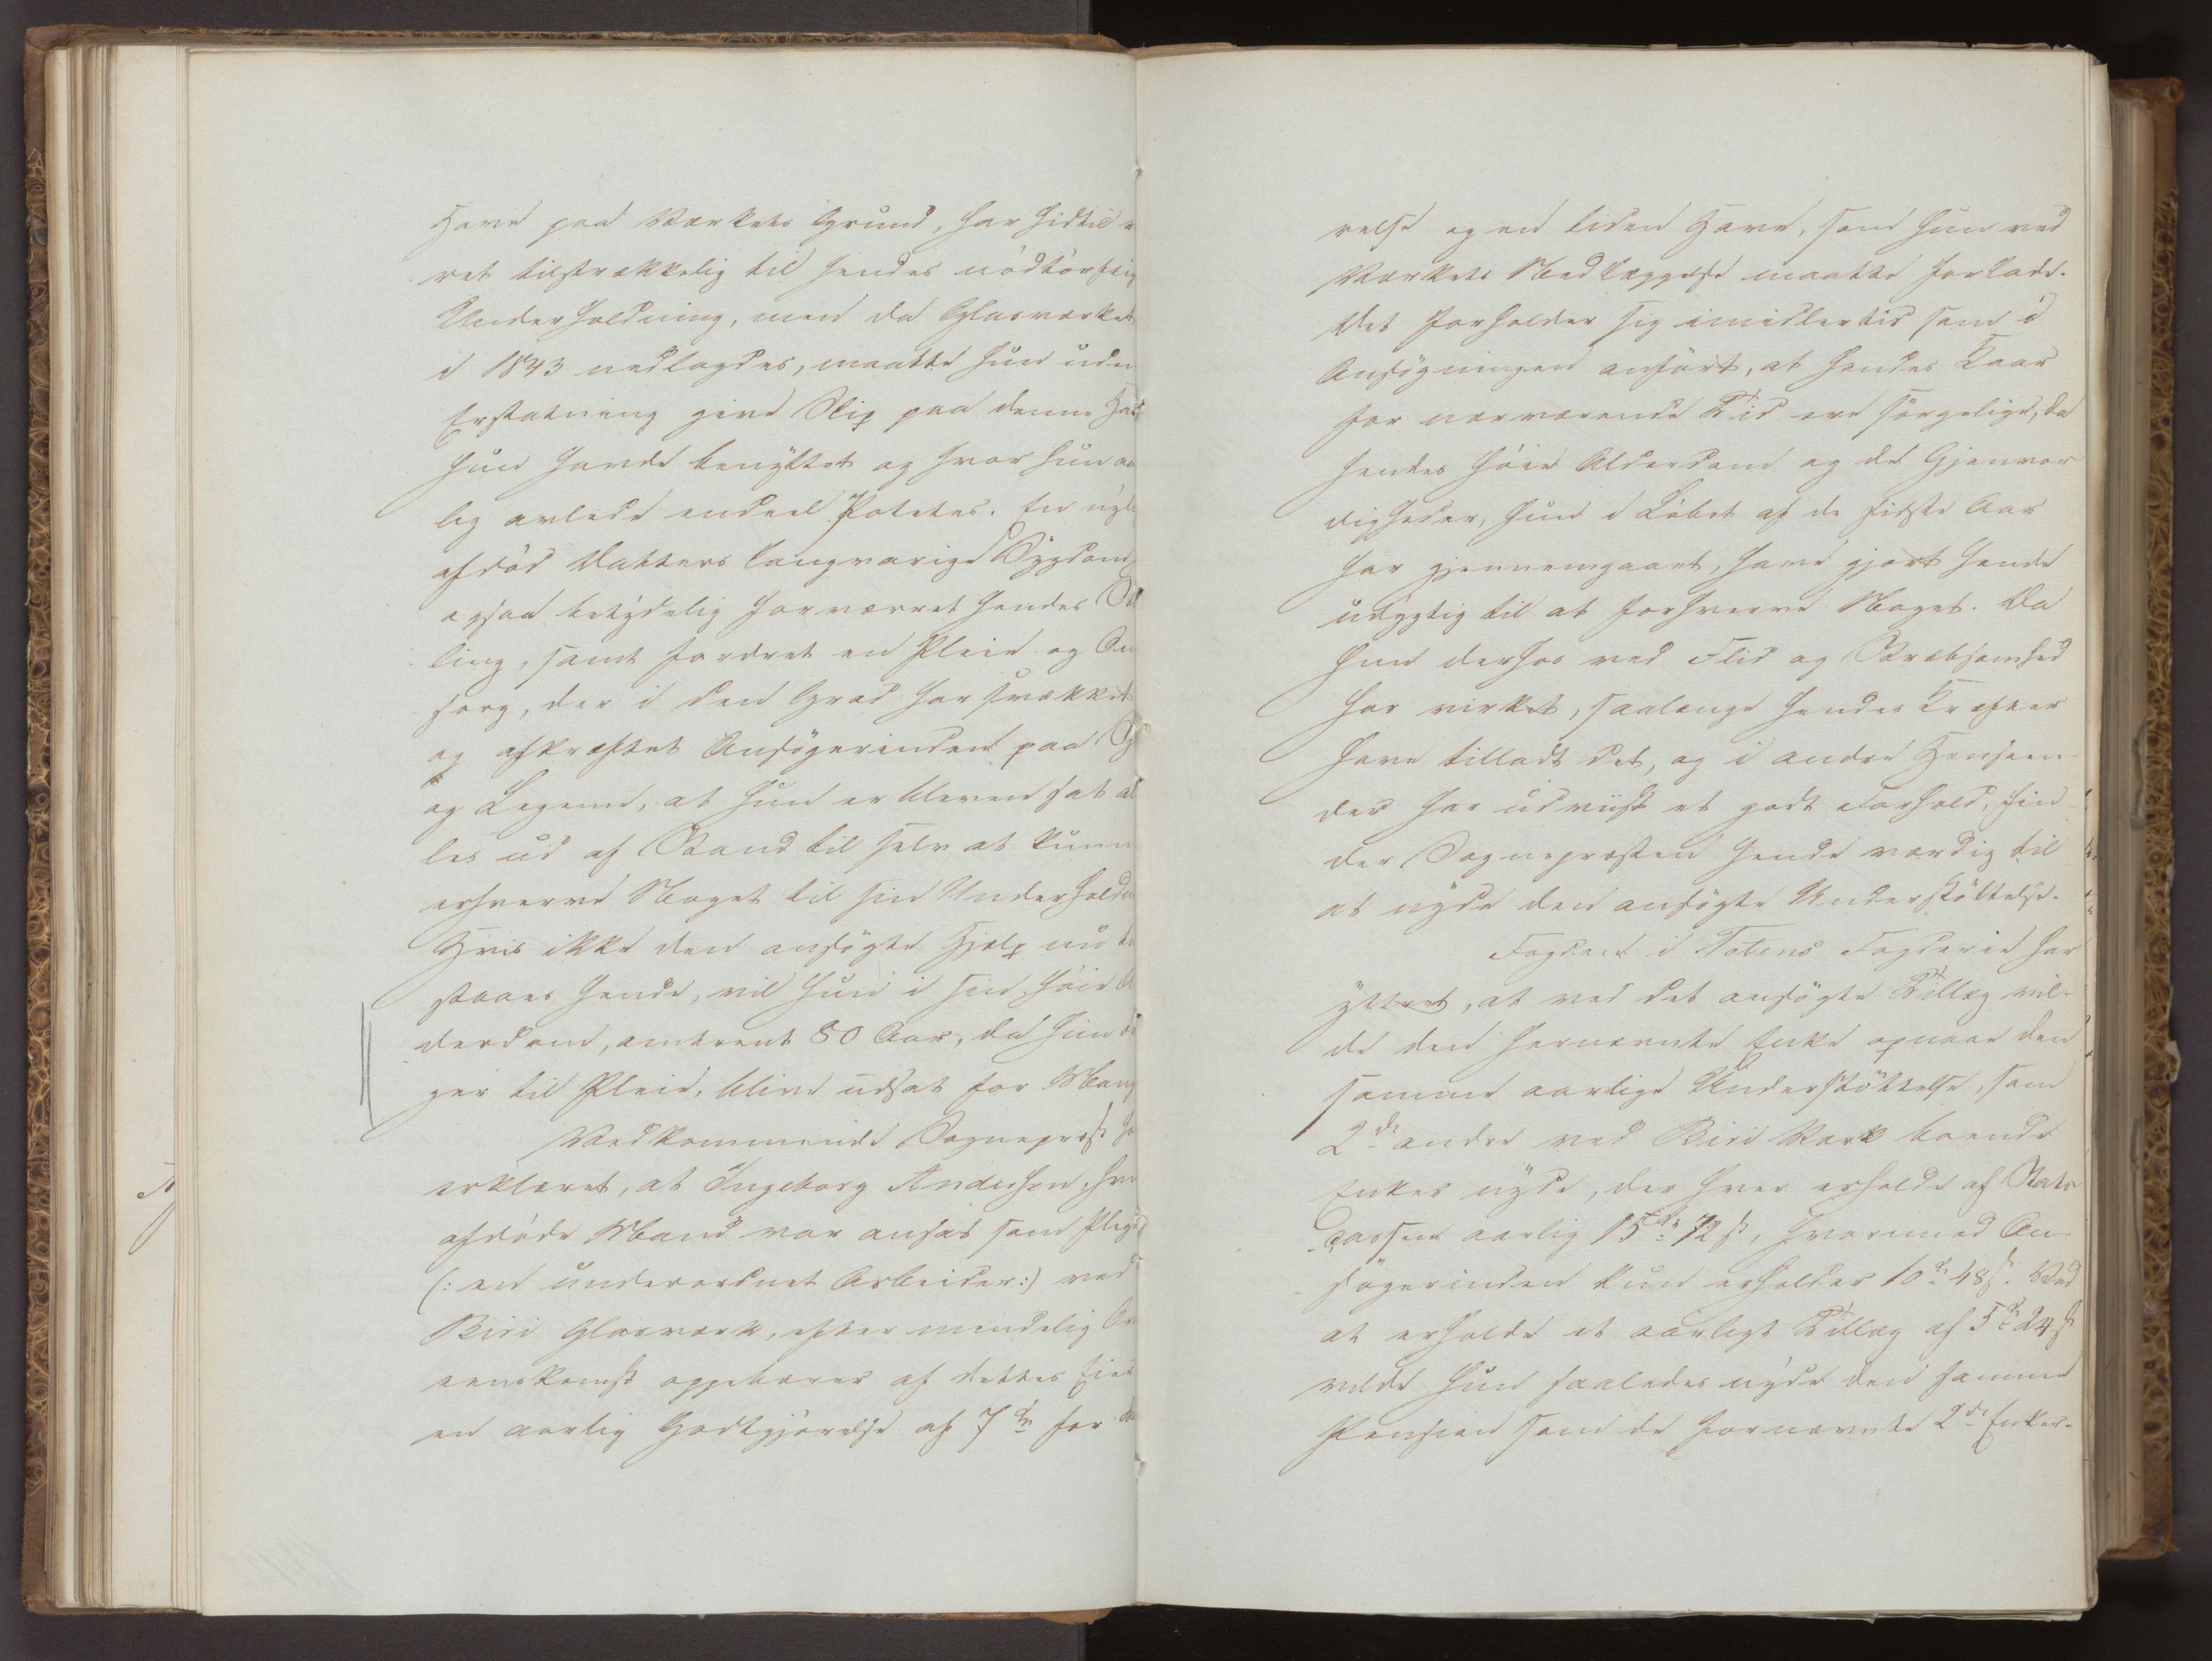 Have paa Værkets Grund, har hidtil v
ret tilstrækkelig til hendes nödtörftig
Underholdning, men da Glasværket
i 1843 nedlagdes, maatte hun uden
Erstatning give Slip paa denne Ha
hun havde benyttet og hvor hun aa
lig avlede endeel Potetes. En nyl
afdöd Datters langvarige Sygdom
ogsaa betydelig forværret hendes Stil
ling, samt fordret en Pleie og Om
sorg, der i den Grad har svækket
og afkræftet Ansögerinden paa Sj
og Legeme, at hun er bleven sat al
les ud af Stand til selv at kunn
erhverve Noget til sin Underholdn
Hvis ikke den ansögte Hjælp nu til
staaes hende, vil hun i sin höie Al
derdom, omtrent 80 Aar, da hun tr
ger til Pleie, blive udsat for Mang
Vedkommende Sognepræst ha
erklæret, at Ingeborg Andersen, hvis
afdöde Mand var ansat som Pleger
(: en underordnet Arbeider:) ved
Biri Glasværk, efter mindelig Ov
eenskomst oppebærer af dettes Eier
en aarlig Godtgjörelse af 7 d for
relse og en liden Have, som hun ved
Værkets Nedlæggelse maatte forlade.
Det forholder sig imidlertid som i
Ansögningen anfört, at hendes Kaar
for nærværende Tid ere sörgelige, da
hendes höie Alderdom og de Gjenvor
digheder, hun i Löbet af de sidste Aar
har gjennemgaaet, have gjort hende
udygtig til at forhverve Noget. Da
hun derhos ved Flid og Stræbsomhed
har virket, saalænge hendes Kræfter
have tilladt det, og i andre Henseen
der har udviist et godt Forhold, fin
der Sognepræsten hende værdig til
at nyde den ansögte Understöttelse.
Fogden i Totens Fogderie har
yttret, at ved det ansögte Tillæg vil-
de den hernævnte Enke opnaae den
samme aarlige Understöttelse, som
2de andre ved Biri Værk boende
Enker nyde, der hver erholde af Stats
cassen aarlig 15 d 72 s, hvorimod An
sögerinden kun erholder 10 d 48 s. Ved
at erholde et aarligt Tillæg af 5 d 24 s
vilde hun saaledes nyde den samme
Pension som de fornævnte 2de Enker.